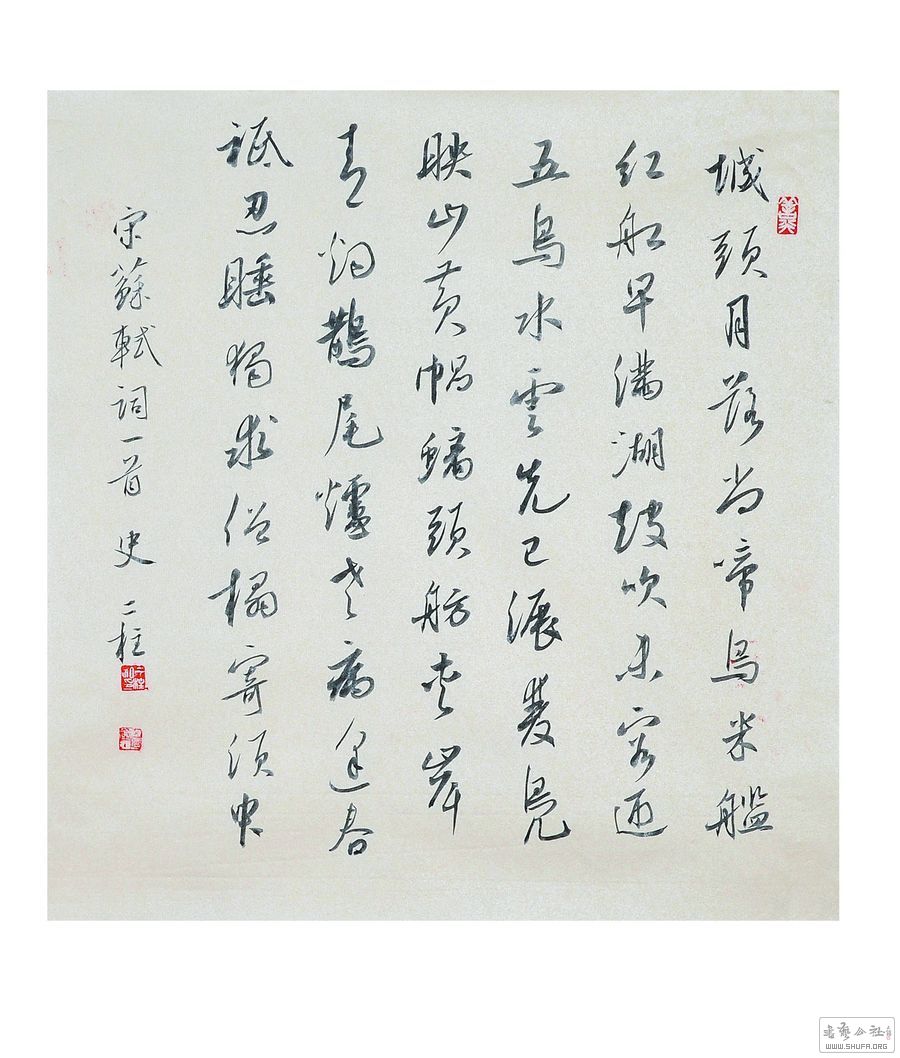 城頭月落尚啼烏米艦
紅船早滿湖鼓吹未容迎
五馬水雲先已漾雙鳧
映山黃帽螭頭舫夾岸
青烟鵲尾爐老病逢春
祗思睡獨求僧榻寄須臾
宋蘇軾詞一首 史二柱
書藝公社
WWW.SHUFA.ORG